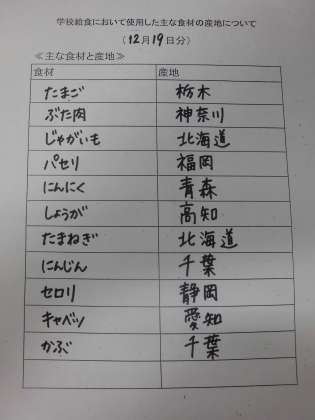 学校給食において使用した主な食材の産地について
(12月19日分)
≪主な食材と産地≫
食材 産地
たまご 栃木
ぶた肉 神奈川
じゃがいも 北海道
パセリ 福岡
にんにく 青森
しょうが 高知
たまねぎ 北海道
にんじん 千葉
セロリ 静岡
キャベツ 愛知
かぶ 千葉